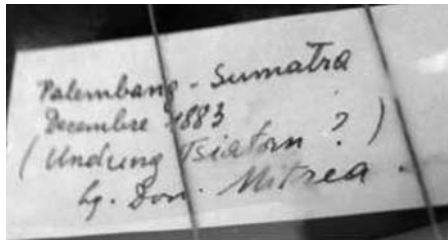 Palembang - Sumatra
Decembre 1883
(Undung Tsiatorn ?)
lg. Don. Mitrea.